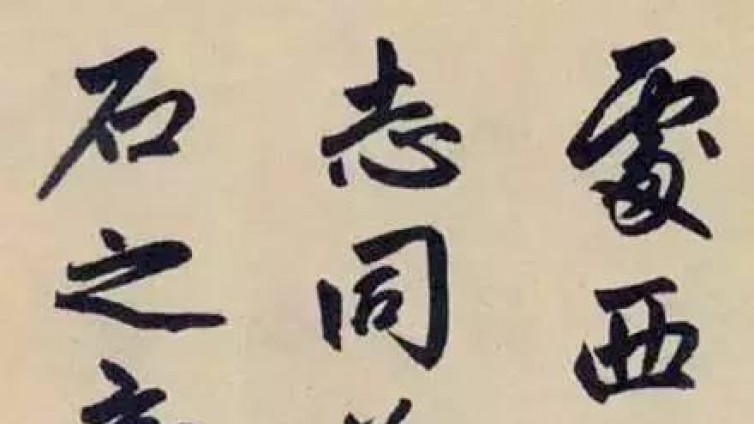 處西
志同
石之